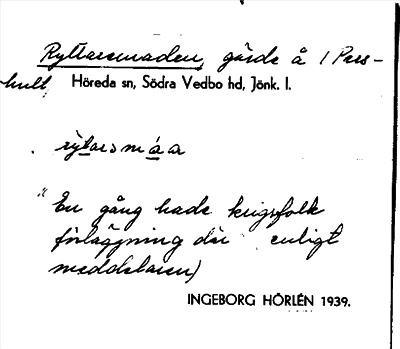 Ryttaremaden, gärde å 1 Pers-
hult, Höreda sn, Södra Vedbo hd, Jönk. l.
rytarsmáa
"En gång hade krigsfolk
förläggning där enligt
meddelaren)
INGEBORG HÖRLÉN 1939.